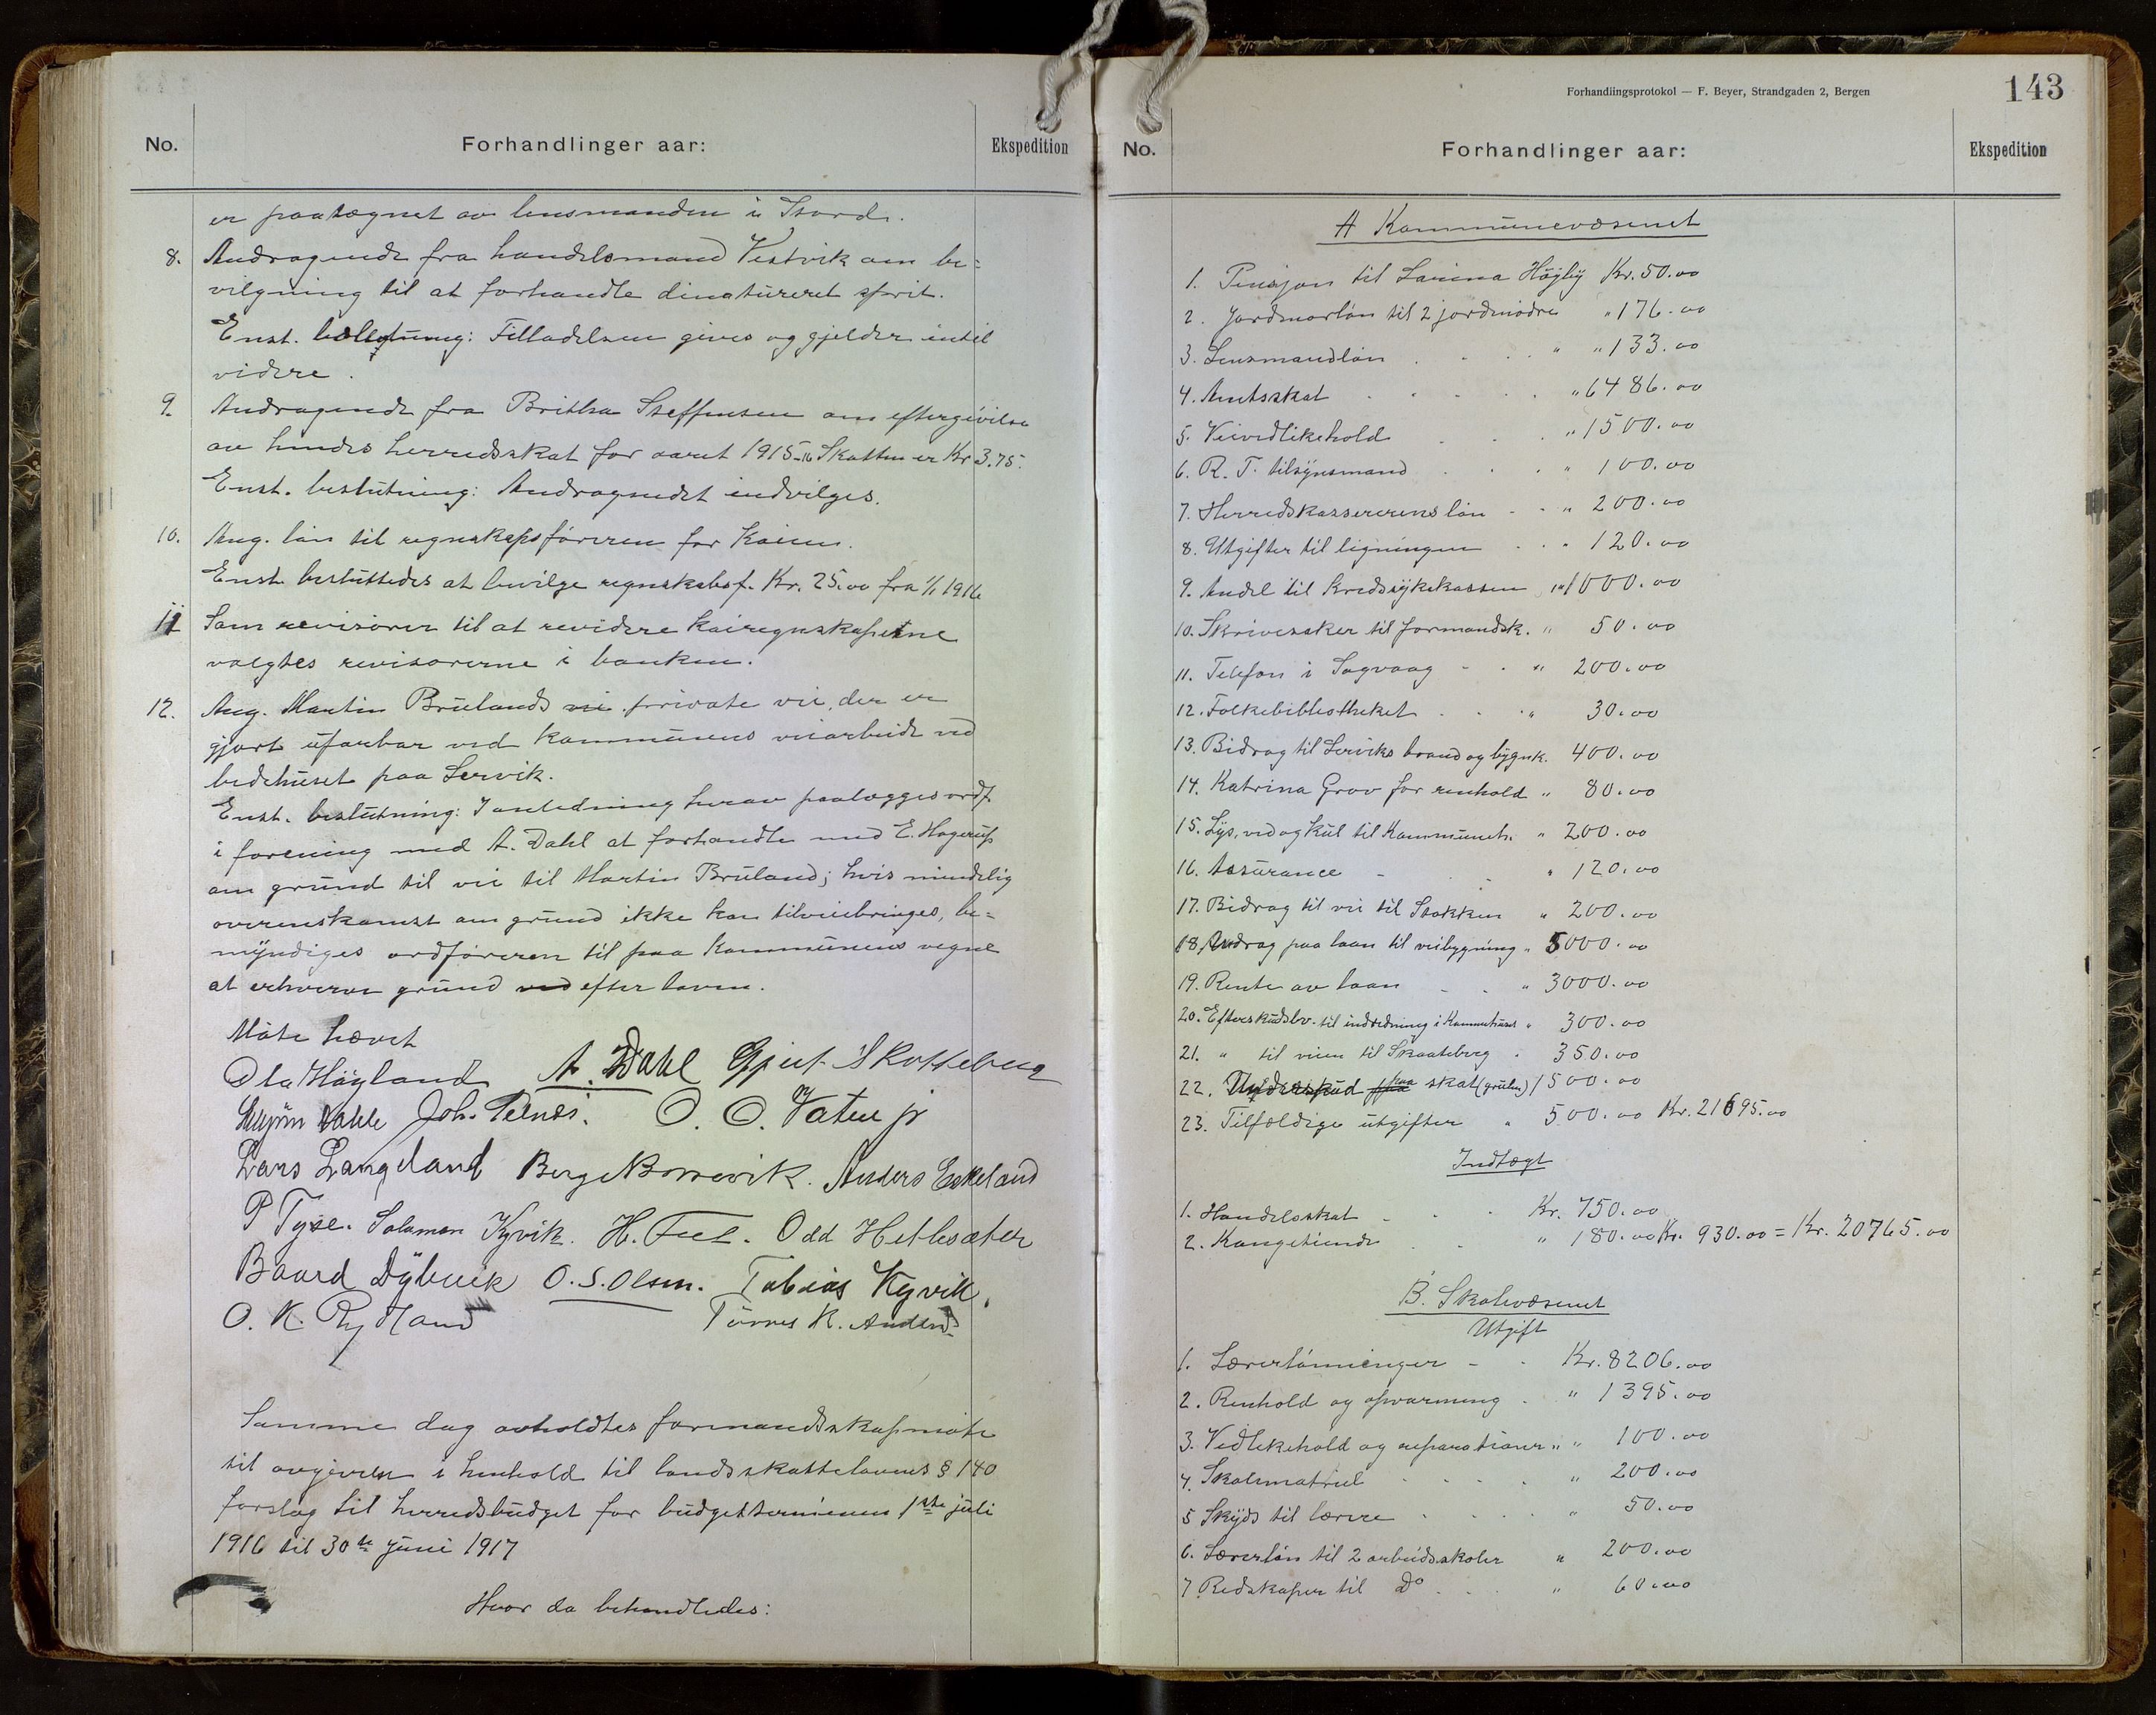 No.
Forhandlinger aar:
Ekspedition
er paategnet av lensmanden i Stord.
8. Andragende fra handelsmand Vestvik om be=
vilgning til at forhandle dinatureret sprit.
Enst. beslutning: Tilladelsen gives og gjelder intil
videre.
9. Andragende fra Britha Steffensen om eftergivilse
av hendes herredsskat for aaret 1915-16 Skatten er Kr 3.75.
Enst. beslutning: Andragendet indvilges.
10. Ang. løn til regnskapsføreren for Kaien.
Enst. besluttedes at bevilge regnskabsf. Kr. 25.00 fra 1/1 1916
11 Som revisorer til at revidere Kairegnskaperne
valgtes revisorerne i banken.
12. Ang. Martin Brulands vei private vei, der er
gjort ufarbar ved Kommunens veiarbeide ved
bedehuset paa Lervik.
Enst. beslutning: I anledning herav paalægges ordf.
i forening med A. Dahl at forhandle med E. Hagerup
om grund til vei til Martin Bruland; hvis mindelig
overenskomst om grund ikke kan tilveiebringes, be=
myndiges ordføreren til paa Kommunens vegne
at erhverve grund ved efter loven.
Møte hævet
Ola Høyland A. Dahl Gjert Skotteberg
Dahle Joh. O. O. Vatne jr
Lars Langeland Berge Anders Eskeland
P Tyse. Salamon Kyvik. H. Odd Hetlesæter
Baard Dybvik O. S. Olsen. Tobias Kyvik.
O. K. Rydland Tørres K.
Samme dag avholdtes formandskapmøte
til avgivelse i henhold til landsskattelovens § 140
forslag til herredsbudget for budgetterminen 1ste juli
1916 til 30te juni 1917
Hvor da behandledes:
Forhandlingsprotokol — F. Beyer, Strandgaden 2, Bergen
143
No.
Forhandlinger aar:
Ekspedition
A Kommunevæsenet
1. Pensjon til Larina Höyby Kr. 50.00
2. Jordmorløn til 2 jordmødre " 176.00
3. Lensmandløn " " 133.00
4. Amtsskat " 6486.00
5. Veivedlikehold " 1500.00
6. R. T. tilsynsmand " 100.00
7. Herredskassererens løn " 200.00
8. Utgifter til ligningen " 120.00
9. Andel til Kredssykekassen " 1000.00
10. Skrivesaker til formandsk. " 50.00
11. Telefon i Sagvaag " 200.00
12. Folkebibliotheket " 30.00
13. Bidrag til Lerviks brand og bygnk. 400.00
14. Katrina Grov for renhold " 80.00
15. Lys, ved og Kul til Kommuneh. " 200.00
16. Assurance " 120.00
17. Bidrag til vei til Stokken " 200.00
18. Avdrag paa laan til veibygning " 5000.00
19. Rente av laan " 3000.00
20. Efterskudsbv. til indredning i Kommehuset " 300.00
21. " til veien til Skaateberg " 350.00
22. Underskud paa skat (gruben) 1500.00
23. Tilfældige utgifter " 500.00 Kr. 21695.00
Indtægt
1. Handelsskat Kr. 750.00
2. Kongetiende " 180.00 Kr. 930.00 = Kr. 20765.00
B. Skolevæsenet
Utgift
1. Lærerlønninger Kr. 8206.00
2. Renhold og opvarmning " 1395.00
3. Vedlikehold og reparationer " " 100.00
4. Skolematriel " 200.00
5 Skyds til lærere " 50.00
6. Lærerløn til 2 arbeidsskoler " 200.00
7 Redskaper til Do " 60.00